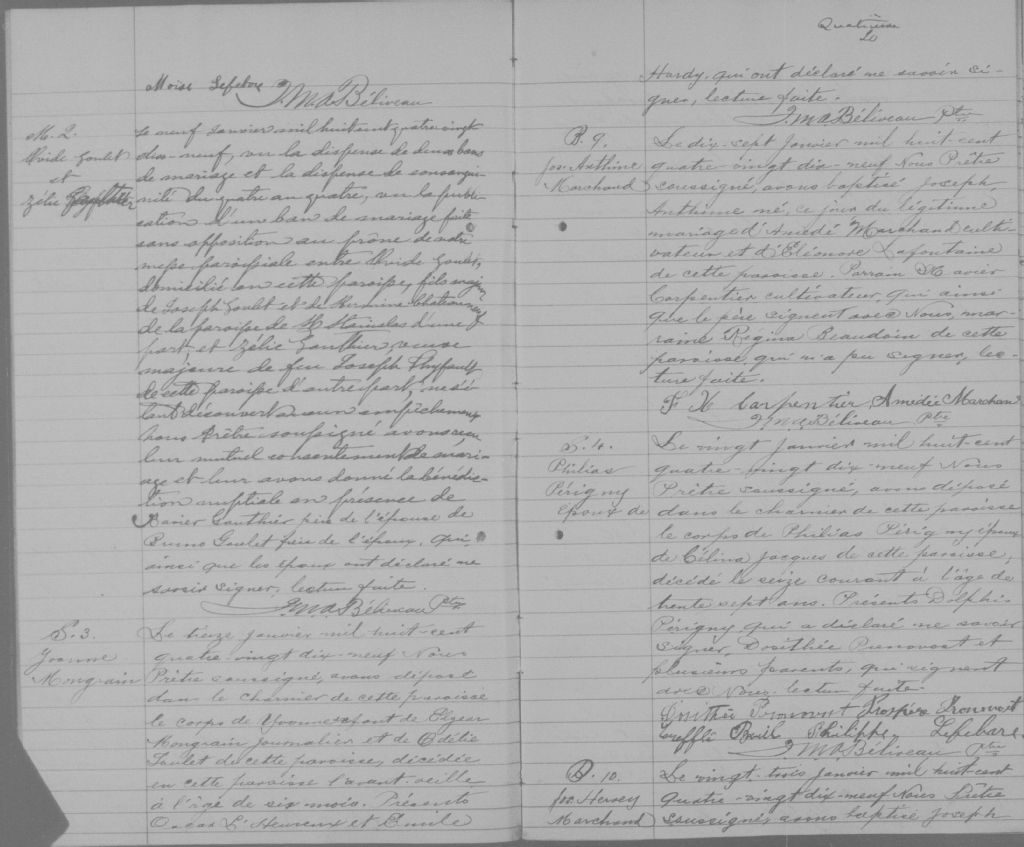 Moïse Lefebvre
J.M.A. Béliveau
M. 2.
Ovide Goulet
et
Zélie Gauthier
Le neuf janvier mil huit cent quatre vingt
dix-neuf, vu la dispense de deux bans
de mariage et la dispense de consangui-
nité du quatre au quatre, vu la publi-
cation d'un ban de mariage faite
sans opposition au prône de notre
messe paroissiale entre Ovide Goulet,
domicilié en cette paroisse, fils majeur
de Joseph Goulet et de Hermine
de la paroisse de St Stanislas d'une
part, et Zélie Gauthier veuve
majeure de feu Joseph Thyfault
de cette paroisse d'autre part, ne s'é-
tant découvert aucun empêchement
nous Prêtre soussigné avons reçu
leur mutuel consentement de mari-
age et leur avons donné la bénédic-
tion nuptiale en présence de
Xavier Gauthier père de l'épouse de
Bruno Goulet frère de l'époux, qui
ainsi que les époux ont déclaré ne
savoir signer, lecture faite.
J.M.A. Béliveau Ptre
S. 3.
Yvonne
Mongrain
Le treize janvier mil huit-cent
quatre-vingt dix-neuf Nous
Prêtre soussigné, avons déposé
dans le charnier de cette paroisse
le corps de Yvonne enfant de Elzear
Mongrain journalier et de Odélie
Goulet de cette paroisse, décédée
en cette paroisse l'avant-veille
à l'âge de six mois. Présents
Oscar L'Heureux et Emile
Quatrième
Hardy qui ont déclaré ne savoir si-
gner, lecture faite.
J.M.A. Béliveau Ptre
B. 9.
Jos. Anthime
Marchand
Le dix-sept Janvier mil huit-cent
quatre-vingt dix-neuf Nous Prêtre
soussigné, avons baptisé Joseph,
Anthime né, ce jour du légitime
mariage d'Amédé Marchand culti-
vateur et d'Eléonore Lafontaine
de cette paroisse. Parrain Xavier
Carpentier cultivateur, qui ainsi
que le père signent avec Nous, mar-
raine Régina Beaudoin de cette
paroisse qui n'a pu signer, lec-
ture faite.
F X Carpentier Amedée Marchan
J.M.A. Béliveau Ptre
S. 4.
Philias
Périgny
époux de
Le vingt janvier mil huit-cent
quatre-vingt dix-neuf Nous
Prêtre soussigné, avons déposé
dans le charnier de cette paroisse
le corps de Philias Périgny époux
de Célina Jacques de cette paroisse,
décédé le seize courant à l'âge de
trente sept ans. Présents Dolphis
Périgny qui a déclaré ne savoir
signer, Dosithée Pronovost et
plusieurs parents, qui signent
avec Nous. lecture faite.
Dosithée Pronovost Prospère Pronovost
Philippe Lefebvre
J.M.A. Béliveau Ptre
B. 10.
Jos. Hervey
Marchand
Le vingt-trois janvier mil huit-cent
quatre-vingt dix-neuf Nous Prêtre
soussigné, avons baptisé Joseph